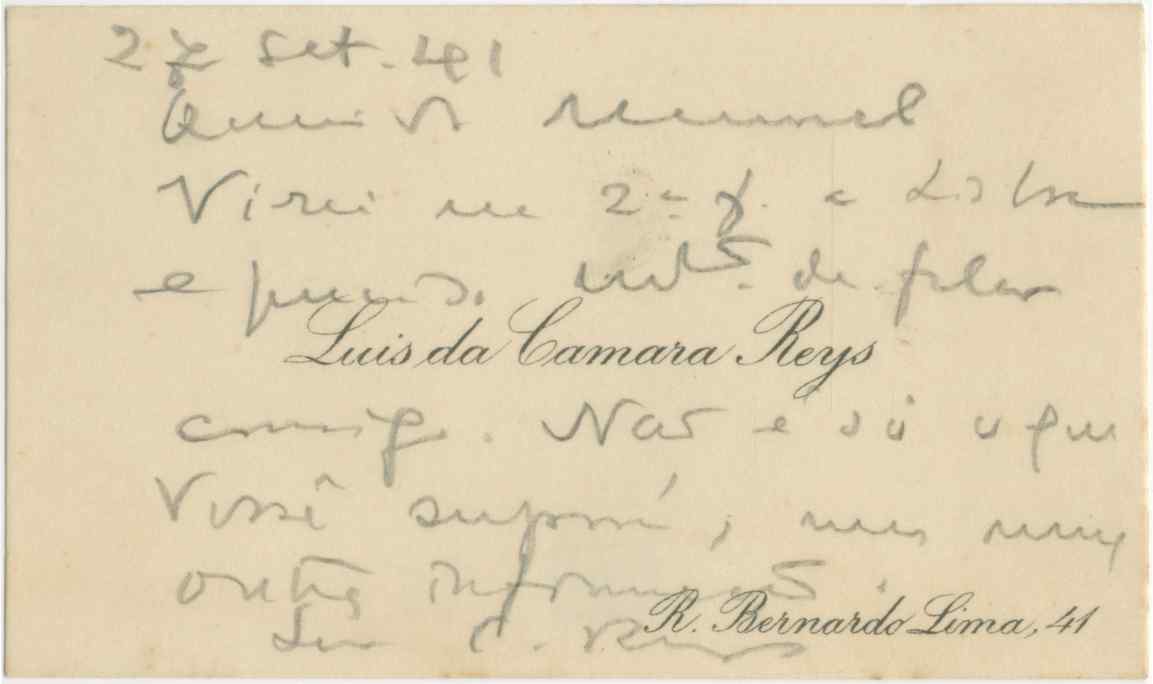 27 Set. 41
Querido Manuel
Virei na 2ª f. a Lisboa
e preciso de falar
Luis da Camara Reys
consigo. Não é só o que
Você supõe, mas uma
outra informação.
Luis C. Reys
R. Bernardo Lima, 41